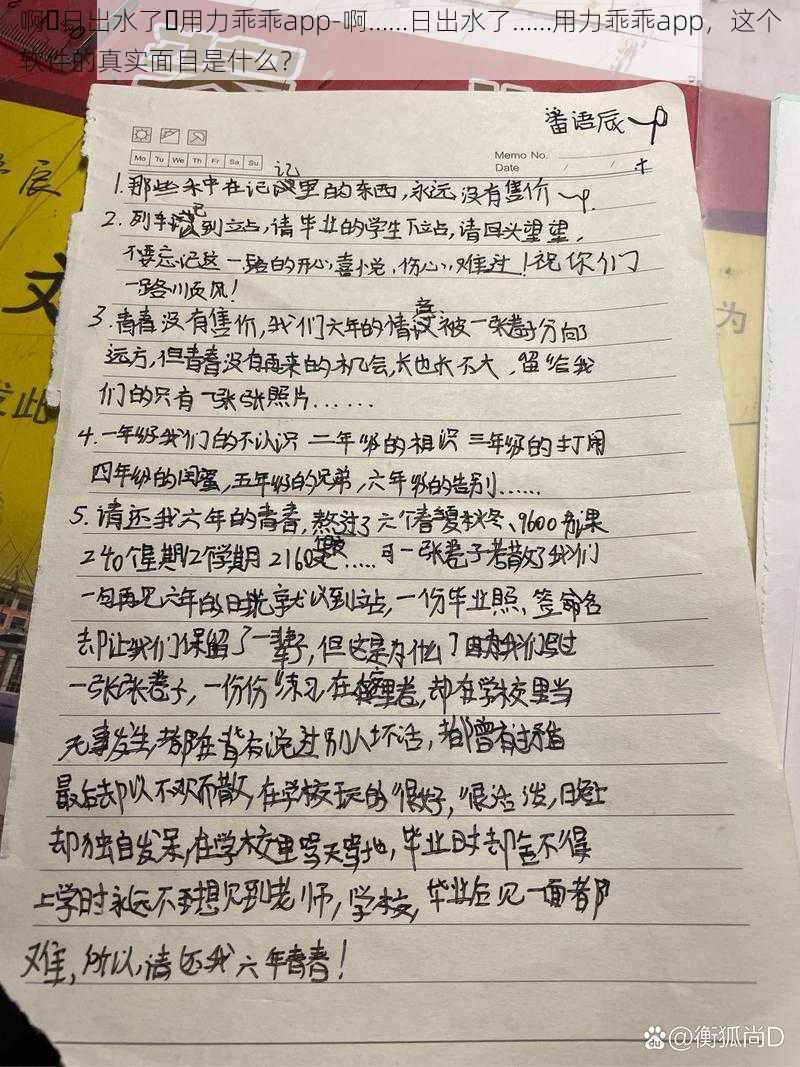 啊日出水了用力乖乖app-啊……日出水了……用力乖乖app，这个
软件的真实面目是什么？
番语辰
Memo No.
Mo Tu We Th Fr Sa Su
Date / /
记
1.那些未中在记里的东西,永远没有售价
2.列车到立占,请毕业的学生下立占,请回头望望,
不要忘记这一路的开心喜悦,伤心,难过!祝你们
一路川页风!
3.青春没有售价,我们六年的情被一张卷子分向
远方,但青春没有再来的机会,长也长不大,留给我
们的只有一张张照片......
4.一年级我们的不认识 二年级的相识 三年级的打闹
四年级的闺蜜,五年级的兄弟,六年级的告别......
5.请还我六年的青春,熬过了六个春夏秋冬、9600节课
240个星期12个学期2160.....可一张卷子若散了我们
一句再见六年的日光就以到立占,一份毕业照,签命名
却让我们保留了一辈子,但这是为什么?因为我们写过
一张张卷子,一份份练习,在里卷,却在学校里当
无事发生,都在背右说过别人坏话,都曾有过矛盾
最后却以不欢而散,在学校玩的很好,很活泼,日免上
却独自发呆,在学校里骂天骂地,毕业时却舍不得
上学时永远不再想见到老师,学校,毕业后见一面都
难,所以,请还我六年青春!
文
为
发此
辰
Baidu @衡狐尚D